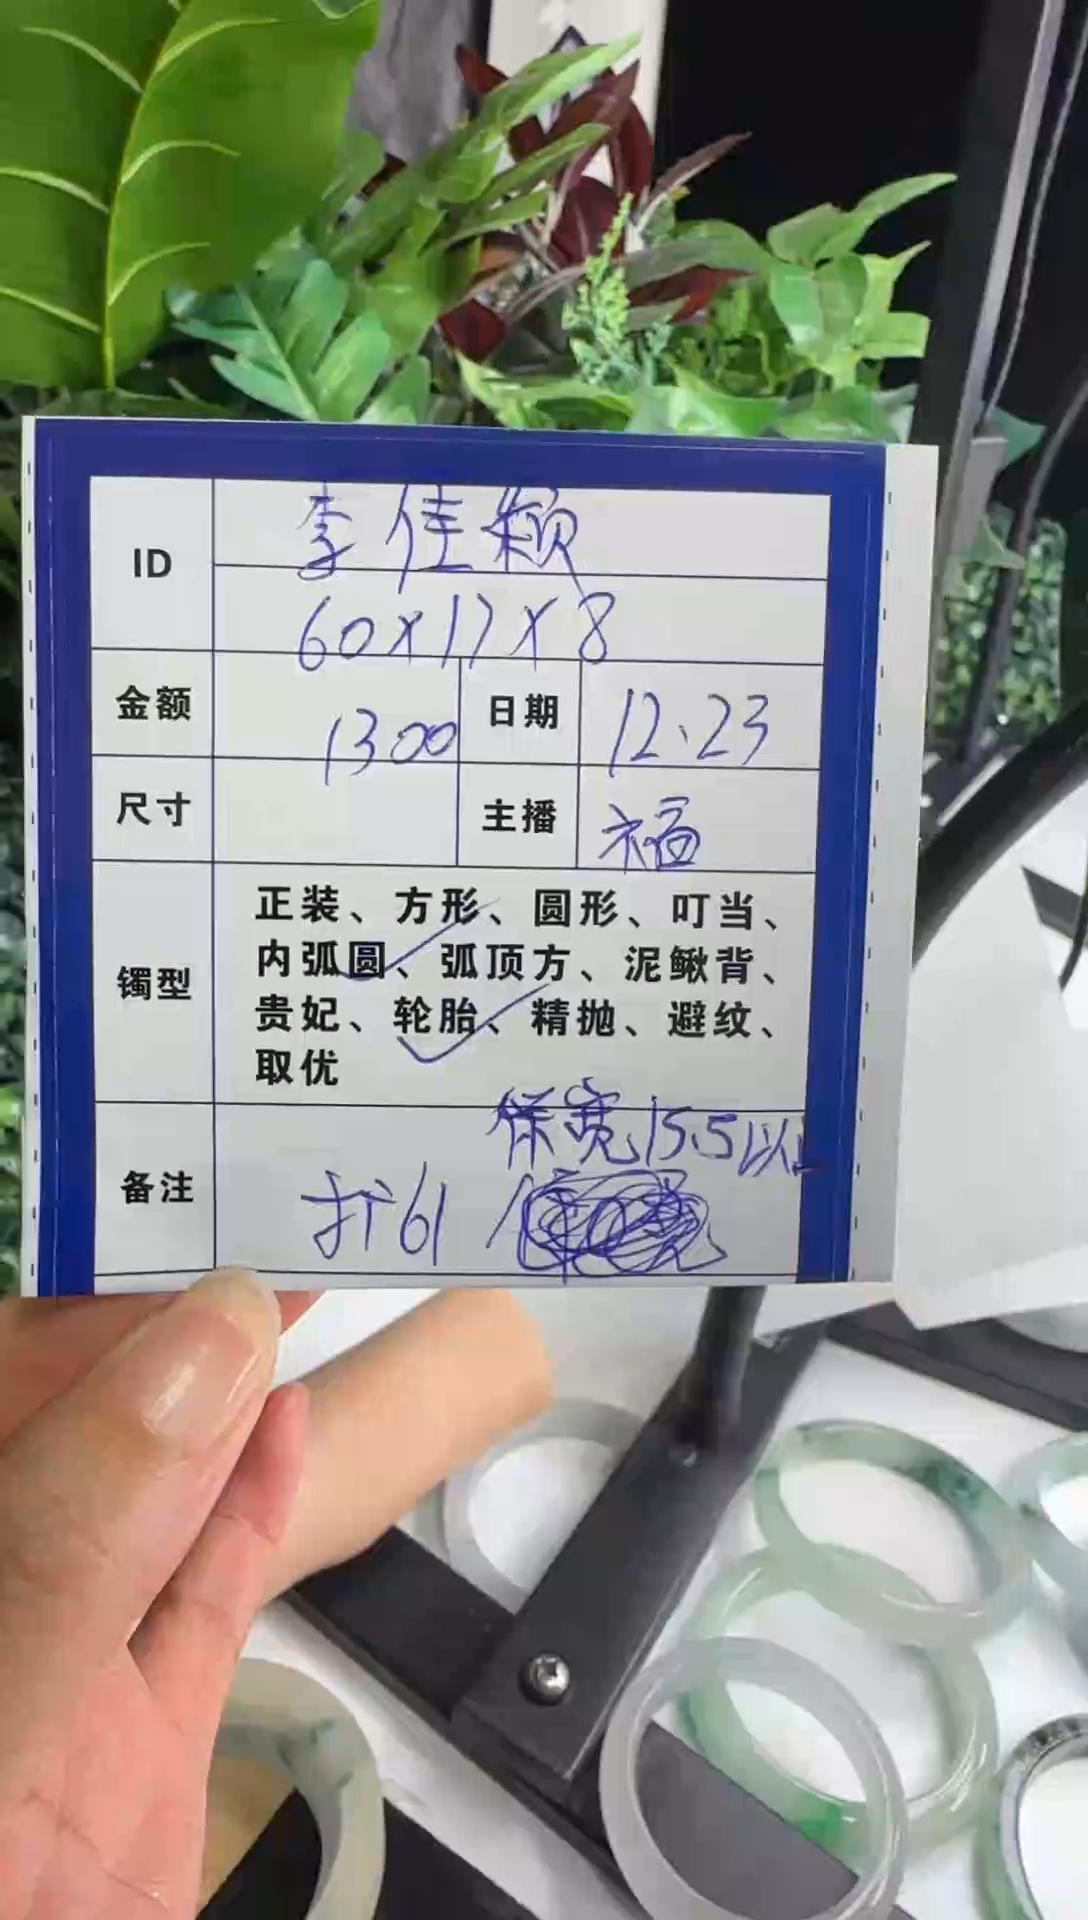 ID 李佳颖
60X17X8
金额 1300 日期 12.23
尺寸 主播 福
镯型 正装、方形、圆形、叮当、
内弧圆、弧顶方、泥鳅背、
贵妃、轮胎、精抛、避纹、
取优
保宽15.5以上
备注 扩61